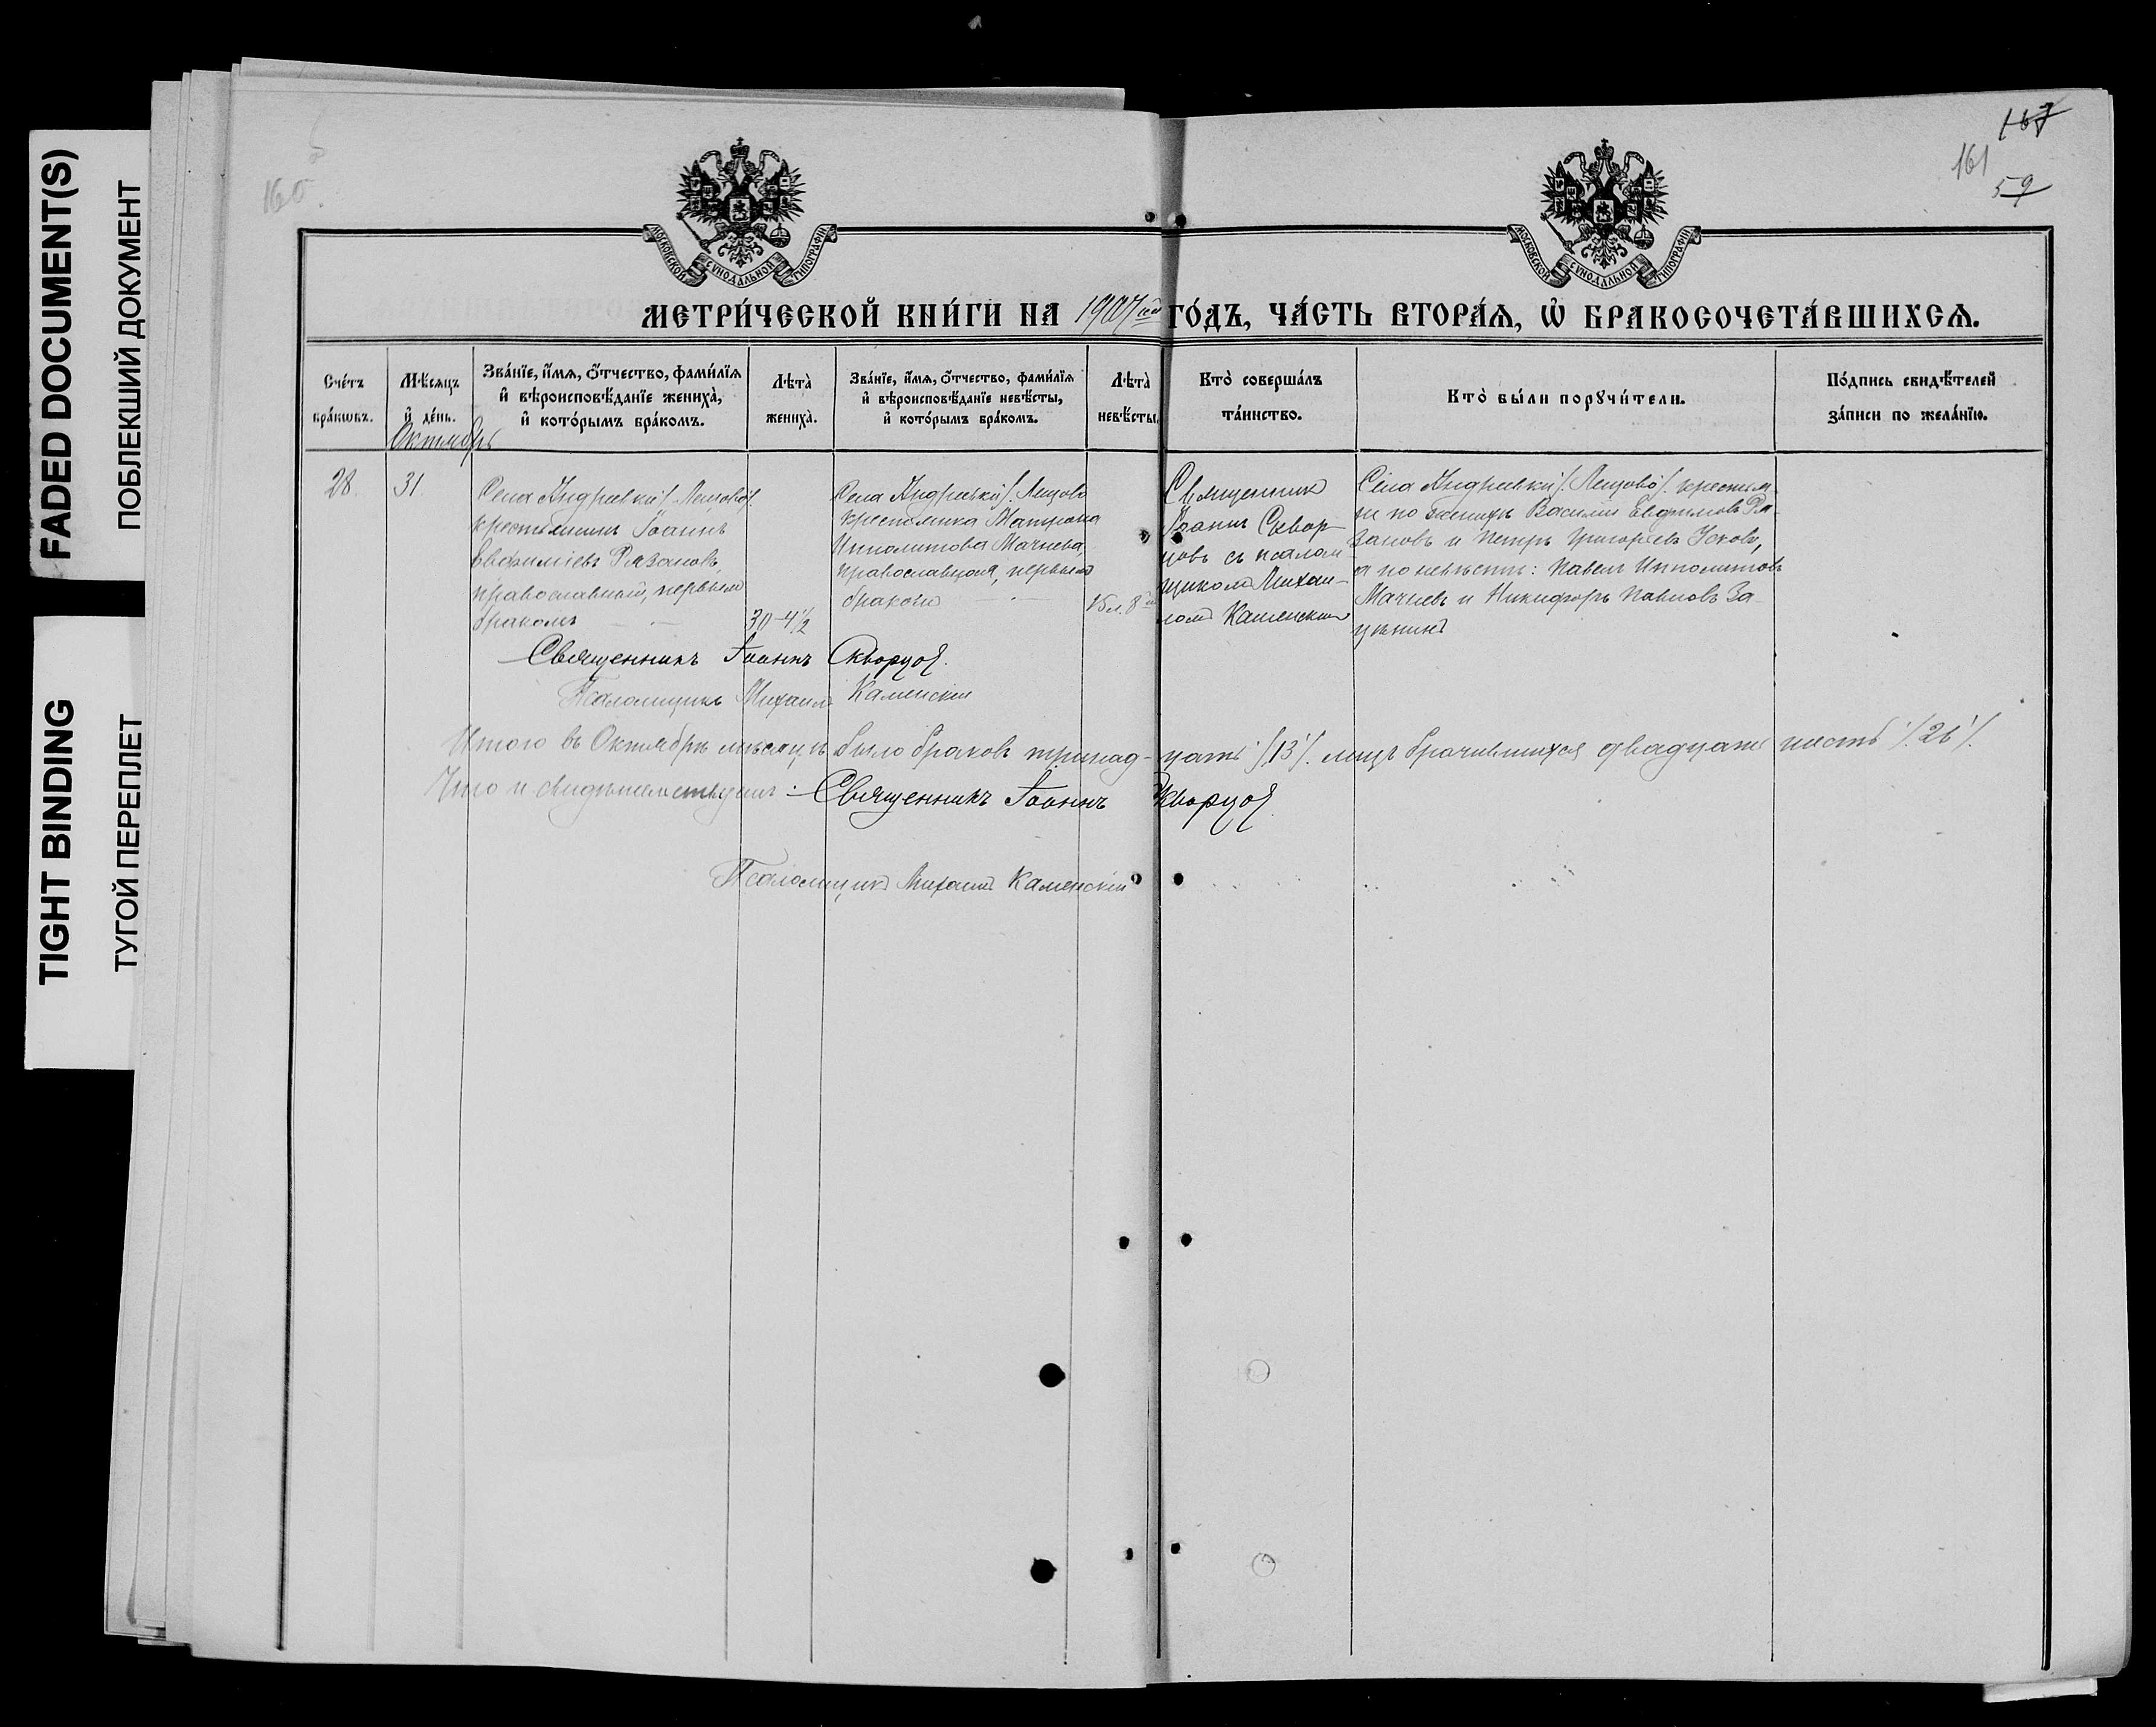 FADED DOCUMENT(S)
ПОБЛЕКШИЙ ДОКУМЕНТ
TIGHT BINDING
ТУГОЙ ПЕРЕПЛЕТ
160.
167
161
59
МОСКОВСКОЙ СѴНОДАЛЬНОЙ ТИПОГРАФІИ
МОСКОВСКОЙ СѴНОДАЛЬНОЙ ТИПОГРАФІИ
МЕТРИ́ЧЕСКОЙ КНИ́ГИ НА 1907 ый ГО́ДЪ, ЧА́СТЬ ВТОРА́Ѧ, Ѽ БРАКОСОЧЕТА́ВШИХСѦ.
Сче́тъ
бра́кѡвъ.
Мѣ́сѧцъ
и҆ де́нь.
Зва́нїе, и҆́мѧ, ѻ҆́тчество, фами́лїѧ
и҆ вѣроисповѣ́данїе жениха̀,
и҆ кото́рымъ бра́комъ.
Лѣта̀
жениха̀.
Зва́нїе, и҆́мѧ, ѻ҆́тчество, фами́лїѧ
и҆ вѣроисповѣ́данїе невѣ́сты,
и҆ кото́рымъ бра́комъ.
Лѣта̀
невѣ́сты.
Кто̀ соверша́лъ
та́инство.
Кто̀ бы́ли порꙋчи́тели.
По́дпись свидѣ́телей
за́писи по жела́нїю.
Октябрь
28.
31.
Села Андреевки /. Лещово /.
крестьянинъ Іоаннъ
Евфиміевъ Рязановъ,
православный, первымъ
бракомъ
30-4 1/2
Села Андреевки /. Лещово
крестьянка Матрона
Ипполитова Мачнева,
православная, первымъ
бракомъ
Священникъ
Іоаннъ Сквор-
цовъ съ псалом-
щикомъ Михаи-
ломъ Каменскимъ
Села Андреевки /. Лещово /. крестья
не по женихѣ Василій Евфимовъ Ря-
зановъ и Петръ Григорьевъ Усковъ,
а по невѣстѣ: Павелъ Ипполитовъ
Мачневъ и Никифоръ Павловъ За-
Священникъ Іоаннъ Скворцовъ.
Псаломщикъ Михаилъ Каменскій
Итого въ Октябрѣ мѣсяцѣ было браковъ тринад-цать /.13/. лицъ брачившихся двадцать шесть /.26/.
Что и свидѣтельствуемъ: Священникъ Іоаннъ Скворцовъ.
Псаломщикъ Михаилъ Каменскій